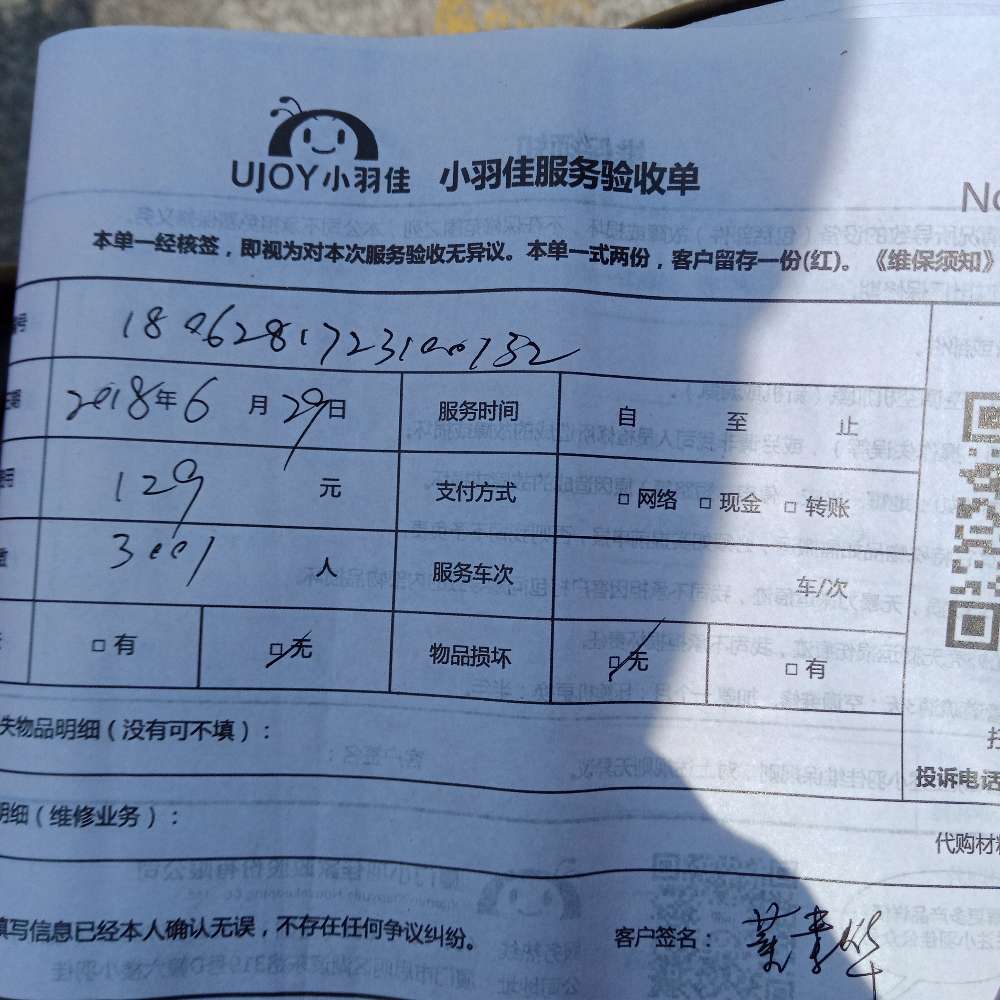 UJOY小羽佳 小羽佳服务验收单
No
本单一经核签，即视为对本次服务验收无异议。本单一式两份，客户留存一份(红)。《维保须知》
号
2018年6月29日 服务时间 自 至 止
129 元 支付方式 □网络 □现金 □转账
3001 人 服务车次 车/次
□有 □无 物品损坏 □无 □有
失物品明细（没有可不填）：
投诉电话
明细（维修业务）：
代购材料
填写信息已经本人确认无误，不存在任何争议纠纷。 客户签名：